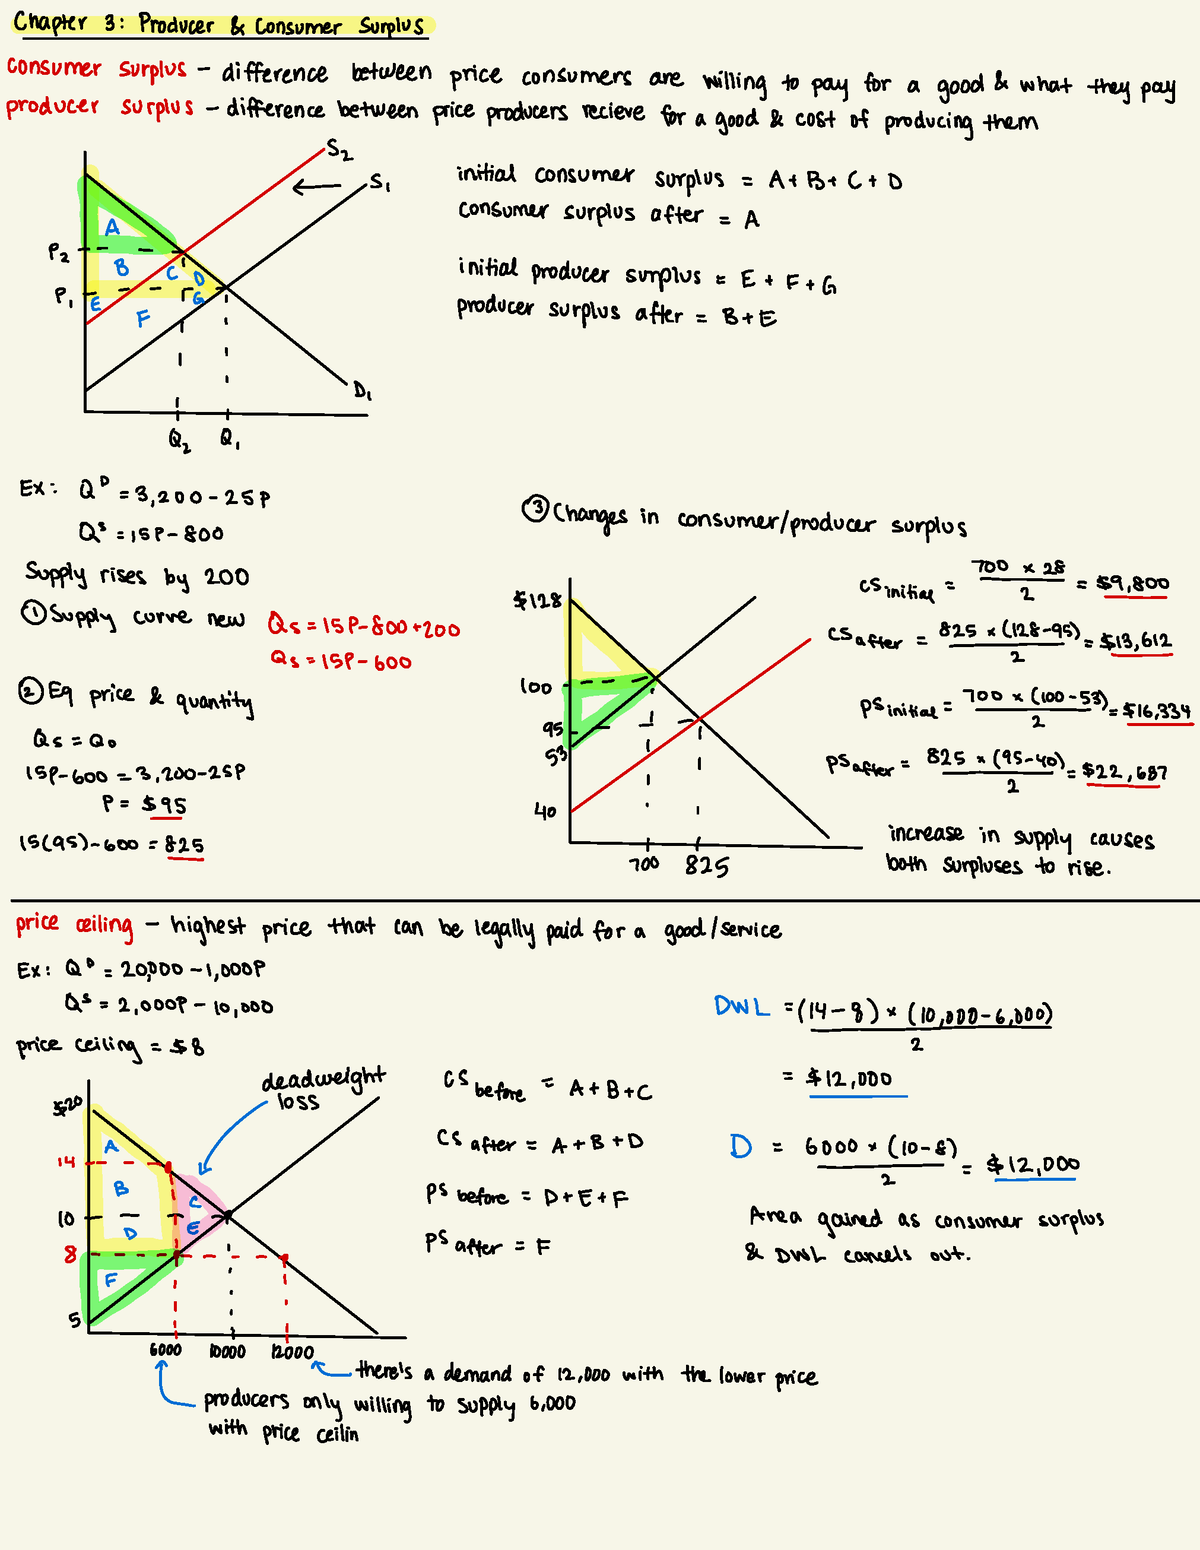 Chapter 3: Producer & Consumer Surplus
consumer surplus – difference between price consumers are willing to pay for a good & what they pay
producer surplus – difference between price producers recieve for a good & cost of producing them
S₂
S₁
A
P₂
B
C
D
P₁
E
G
F
D₁
Q₂ Q₁
initial consumer surplus = A+B+C+D
consumer surplus after = A
initial producer surplus = E+F+G
producer surplus after = B+E
Ex: Qᴰ = 3,200-25P
Qˢ = 15P-800
Supply rises by 200
① Supply curve new Qs = 15P-800+200
Qs = 15P-600
② Eq price & quantity
Qs = QD
15P-600 = 3,200-25P
P = $95
15(95)-600 = 825
③ Changes in consumer/producer surplus
$128
100
95
53
40
700 825
CS initial = 700 x 28 / 2 = $9,800
CS after = 825 x (128-95) / 2 = $13,612
PS initial = 700 x (100-53) / 2 = $16,334
PS after = 825 x (95-40) / 2 = $22,687
increase in supply causes
both surpluses to rise.
price ceiling – highest price that can be legally paid for a good/service
Ex: Qᴰ = 20,000-1,000P
Qˢ = 2,000P-10,000
price ceiling = $8
deadweight
loss
$20
A
14
B
C
10
D
E
8
F
5
6000 10000 12000
there's a demand of 12,000 with the lower price
producers only willing to supply 6,000
with price ceilin
CS before = A+B+C
CS after = A+B+D
PS before = D+E+F
PS after = F
DWL = (14-8) x (10,000-6,000) / 2
= $12,000
D = 6000 x (10-8) / 2 = $12,000
Area gained as consumer surplus
& DWL cancels out.